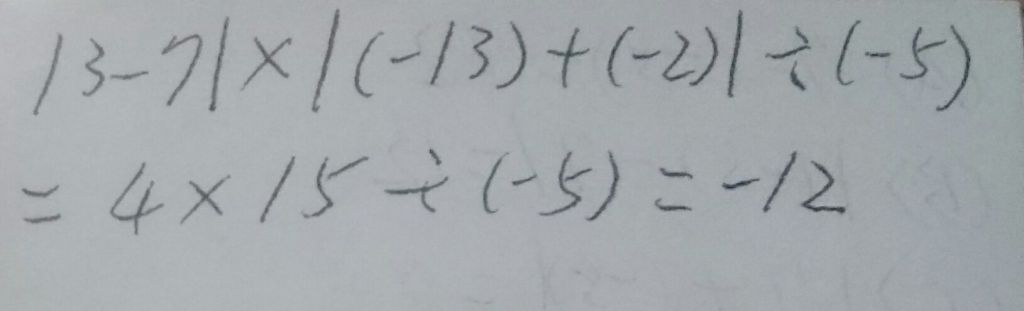 |3-7|×|(-13)+(-2)|÷(-5)
=4×15÷(-5)=-12